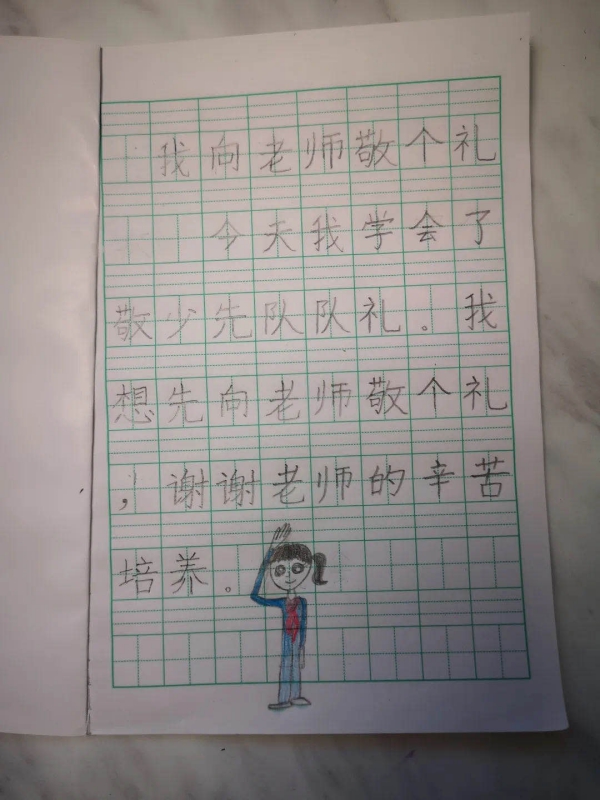 我向老师敬个礼
今天我学会了
敬少先队队礼。我
想先向老师敬个礼
，谢谢老师的辛苦
培养。